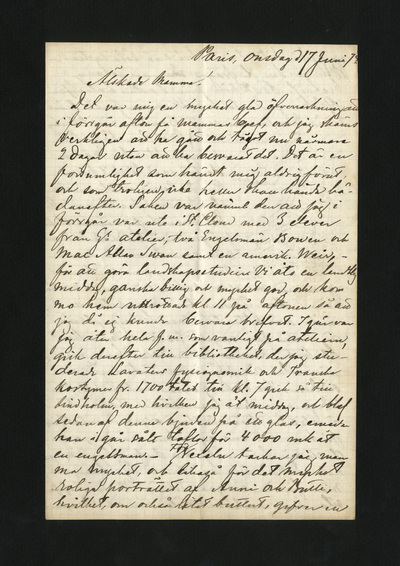 Paris, onsdag 17 Juni 7
Älskade Mamma!
Det var mig en mycket glad öfverraskning att
i förrgår afton få mammas bref, och jag skäms
verkligen att ha gått och trägt nu närmare
2 dagar utan att ha besvarat det. Det är en
försumlighet som händt mig aldrig förut
och som troligen icke heller skall hända hä-
danefter. Saken var nämnl den att jag i
förrgår var ute i St. Cloud med 3 elever
från G's atelier, två Engelsmän Bowen och
Mac Allan Swan samt en amerik. Weir, -
för att göra landskapsstudier. Vi åto en landtlig
middag, ganska billig och mycket god, och kom
mo hem uttröttade kl 11 på aftonen så att
jag då ej kunde besvara brefvet. I går var
jag åter hela f.m. som vanligt på atelieren,
gick derefter till bibliotheket, der jag stu-
derade Lavaters fysiognomik och Franska
kostymer fr. 1700 talet till kl. 7 gick så till
Lindholm, med hvilken jag åt middag, och blef
sedan af denne bjuden på ett glas, emedan
han i går sålt taflor för 4000 mk åt
en engelsman. - Nu tackar jag mam
ma mycket, och likaså för det mycket
roliga porträttet af Anni och Mutte,
hvilket, om också litet buttert, gifver en